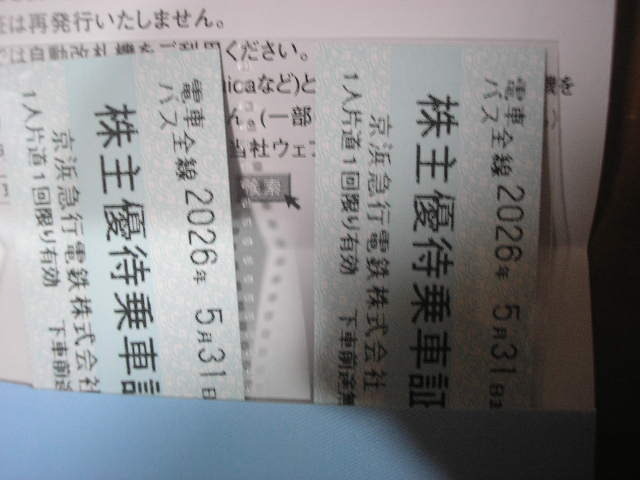 は再発行いたしません。
は自動改札機をご利用ください。
icaなど)と
ん。(一部
当社ウェブ
検索
電車
バス全線 2026年 5月31日
株主優待乗車証
京浜急行電鉄株式会社
1人片道1回限り有効 下車前途
電車
バス全線 2026年 5月31日ま
株主優待乗車証
京浜急行電鉄株式会社
1人片道1回限り有効 下車前途無